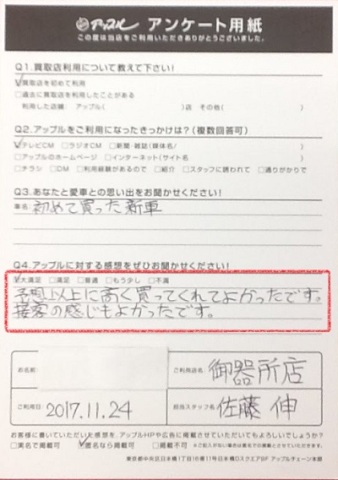 アップル アンケート用紙
この度は当店をご利用いただきありがとうございました。
Q1.買取店利用について教えて下さい!
☑買取店を初めて利用
□過去に買取店を利用したことがある
利用した店舗 アップル( )店 その他( )
Q2.アップルをご利用になったきっかけは?(複数回答可)
☑テレビCM □ラジオCM □新聞・雑誌(媒体名/ )
□アップルのホームページ □インターネット(サイト名 )
□チラシ □DM □利用経験があるので □紹介 □スタッフに誘われて □通りがかりで
Q3.あなたと愛車との思い出をお聞かせください!
車名: 初めて買った新車
Q4.アップルに対する感想をぜひお聞かせください!
☑大満足 □満足 □普通 □もう少し □不満
予想以上に高く買ってくれてよかったです。
接客の感じもよかったです。
お名前
ご利用店名 御器所店
ご利用日 2017.11.24
担当スタッフ名 佐藤 伸
お客様に書いていただいた感想を、アップルHPや広告に掲載させていただいてもよろしいでしょうか?
□実名で掲載可 ☑匿名なら掲載可 □掲載不可
東京都中央区日本橋1丁目16番11号日本橋DスクエアBF アップルチェーン本部